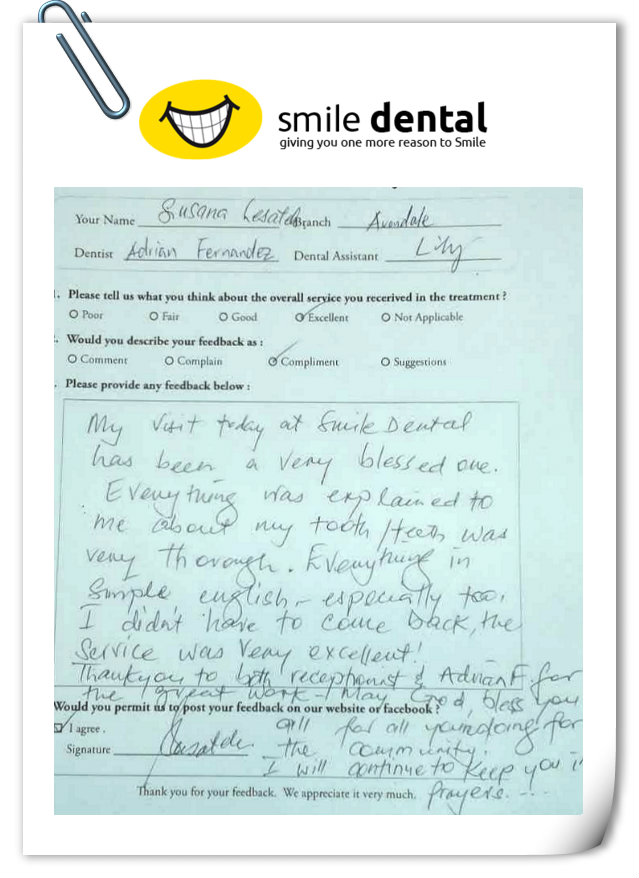 smile dental
giving you one more reason to Smile
Your Name Susana Branch Avondale
Dentist Adrian Fernandez Dental Assistant Lily
. Please tell us what you think about the overall service you recerived in the treatment ?
Poor Fair Good Excellent Not Applicable
. Would you describe your feedback as :
Comment Complain Compliment Suggestions
. Please provide any feedback below :
My visit today at Smile Dental
has been a very blessed one.
Everything was explained to
me about my tooth/teeth was
very thorough. Everything in
simple english - especially too.
I didn't have to come back, the
service was very excellent!
Thankyou to both receptionist & Adrian F for
the great work - May God bless you
Would you permit us to post your feedback on our website or facebook ?
I agree . all for all your doing for
Signature the community.
I will continue to keep you in
Thank you for your feedback. We appreciate it very much. prayers. ....